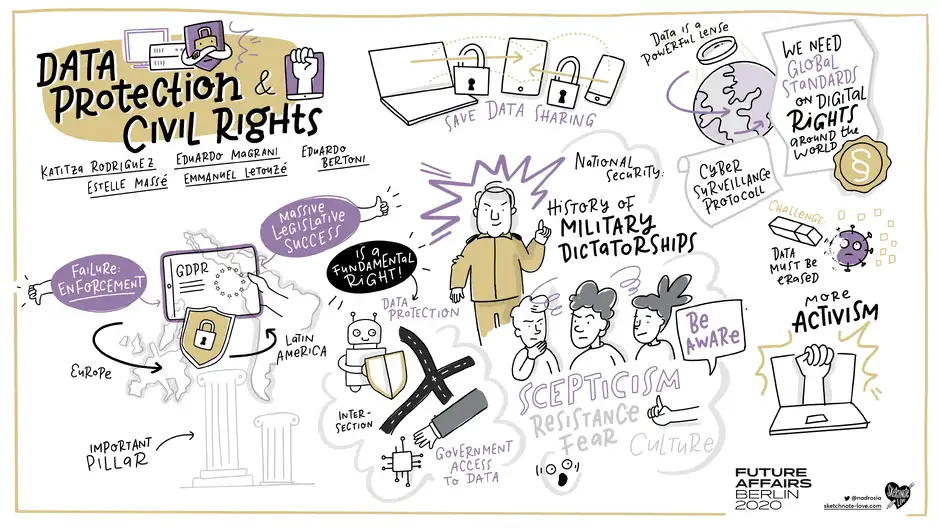 DATA
PROTECTION &
CIVIL RIGHTS
KATITZA RODRIGUEZ
EDUARDO MAGRANI
EDUARDO
BERTONI
ESTELLE MASSÉ
EMMANUEL LETOUZÉ
SAVE DATA SHARING
DATA IS A
POWERFUL LENSE
WE NEED
GLOBAL
STANDARDS
ON DIGITAL
RIGHTS
AROUND THE
WORLD
§
CYBER
SURVEILLANCE
PROTOCOLL
NATIONAL
SECURITY:
HISTORY OF
MILITARY
DICTATORSHIPS
CHALLENGE:
DATA
MUST BE
ERASED
MORE
ACTIVISM
MASSIVE
LEGISLATIVE
SUCCESS
FAILURE:
ENFORCEMENT
GDPR
EUROPE
LATIN
AMERICA
IMPORTANT
PILLAR
IS A
FUNDAMENTAL
RIGHT!
DATA
PROTECTION
INTER-
SECTION
GOVERNMENT
ACCESS
TO DATA
BE
AWARE
SCEPTICISM
RESISTANCE
FEAR
CULTURE
FUTURE
AFFAIRS
BERLIN
2020
@nadrosia
sketchnote-love.com
SKETCHNOTE
LOVE